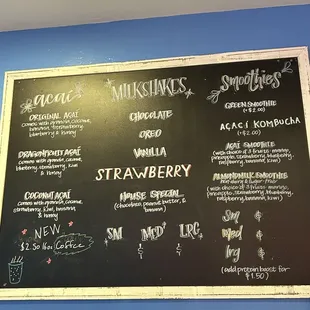 açaí
ORIGINAL AÇAÍ
comes with granola, coconut,
banana, strawberry, blueberry
& honey
DRAGONFRUIT AÇAÍ
comes with granola, coconut,
blueberry, strawberry, kiwi,
& honey
COCONUT AÇAÍ
comes with granola, coconut,
strawberry, kiwi, banana,
& honey
NEW
$2.50 16oz Coffee
MILKSHAKES
CHOCOLATE
OREO
VANILLA
STRAWBERRY
HOUSE SPECIAL
(chocolate, peanut butter, &
banana)
SM MED LRG
Smoothies
GREEN SMOOTHIE
(+$2.00)
AÇAÍ KOMBUCHA
(+$2.00)
AÇAÍ SMOOTHIE
(with choice of 3 fruits: mango,
pineapple, strawberry, blueberry,
raspberry, banana, kiwi)
ALMONDMILK SMOOTHIE
(with choice of 3 fruits: mango,
pineapple, strawberry, blueberry,
raspberry, banana, kiwi)
Sm $
Med $
lrg $
(add protein boost for
$1.50)